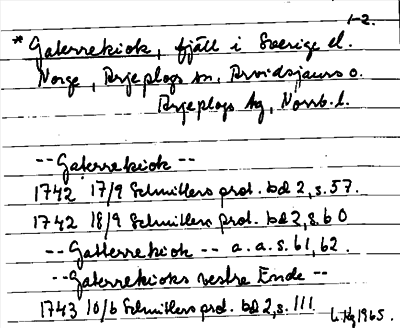 1-2.
* Gaterrekiok, fjäll i Sverige el.
Norge, Arjeplogs sn, Arvidsjaurs o.
Arjeplogs tg, Norrb. l.
-- Gaterrekiok --
1742 17/9 Schnitlers prot. bd 2, s. 57.
1742 18/9 Schnitlers prot. bd 2, s. 60
-- Gatterrekiok -- a. a. s. 61, 62.
-- Gaterrekioks vestre Ende --
1743 10/6 Schnitlers prot. bd 2, s. 111
1965.